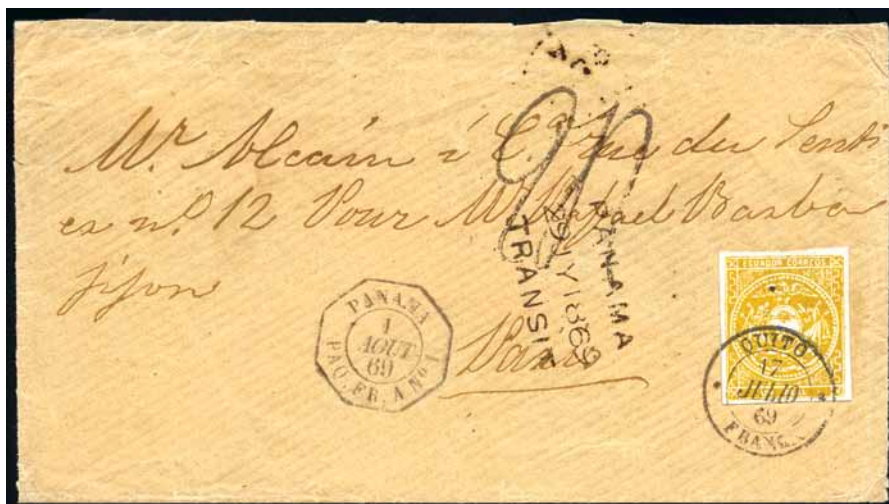 Mr Alcain i Ca rue du Senti
er no. 12 Pour Mr Rafael Barba
Jijon
Paris
PANAMA
29 JY 1869
TRANSIT
PANAMA
1
AOUT
69
PAQ. FR. A No 1
ECUADOR CORREOS
QUITO
17
JULIO
69
FRANCA